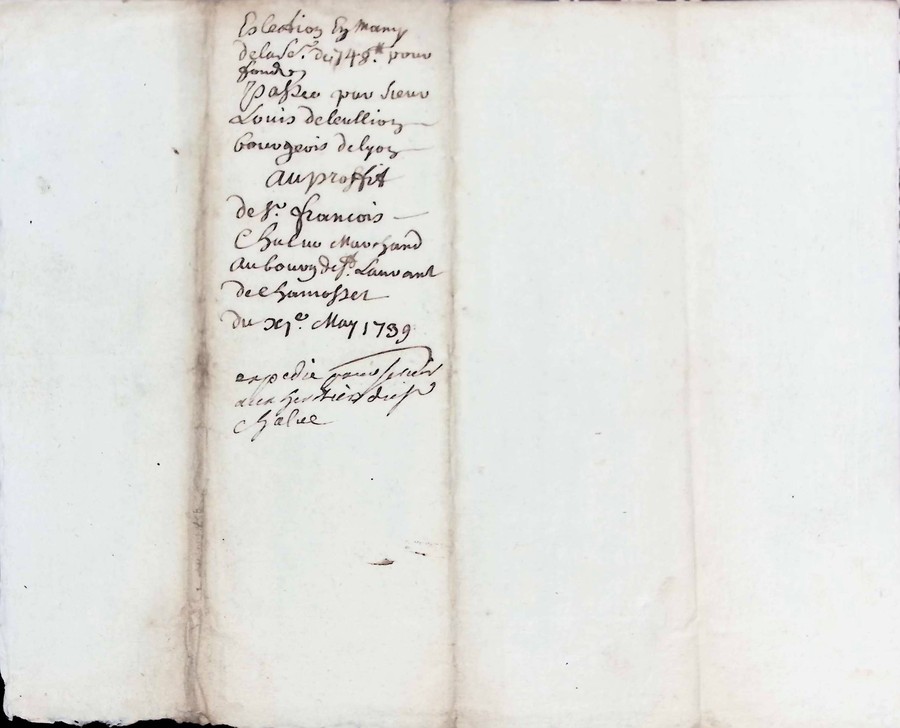 Eslection En Many
dela Se.e de 748.tt pour
fondz
passée par sieur
Louis deleullion
bourgeois delyon
au proffit
de Sr. françois
Chalue Marchand
au bourg de St. Laurant
de Chamosset
du XIe. May 1739
expedié pour servir
aux heritiers dud Sr
Chalue